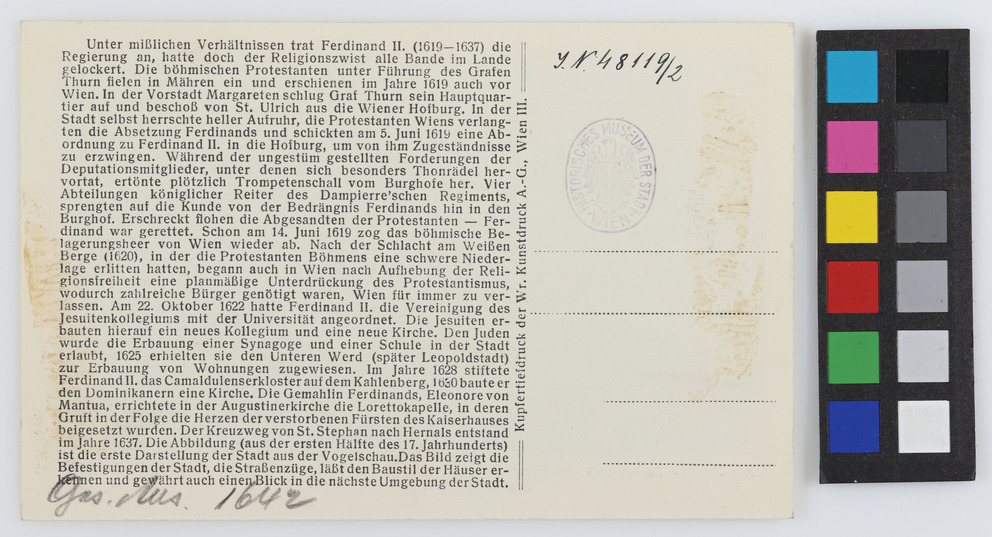 Unter mißlichen Verhältnissen trat Ferdinand II. (1619—1637) die
Regierung an, hatte doch der Religionszwist alle Bande im Lande
gelockert. Die böhmischen Protestanten unter Führung des Grafen
Thurn fielen in Mähren ein und erschienen im Jahre 1619 auch vor
Wien. In der Vorstadt Margareten schlug Graf Thurn sein Hauptquar-
tier auf und beschoß von St. Ulrich aus die Wiener Hofburg. In der
Stadt selbst herrschte heller Aufruhr, die Protestanten Wiens verlang-
ten die Absetzung Ferdinands und schickten am 5. Juni 1619 eine Ab-
ordnung zu Ferdinand II. in die Hofburg, um von ihm Zugeständnisse
zu erzwingen. Während der ungestüm gestellten Forderungen der
Deputationsmitglieder, unter denen sich besonders Thonrädel her-
vortat, ertönte plötzlich Trompetenschall vom Burghofe her. Vier
Abteilungen königlicher Reiter des Dampierre'schen Regiments,
sprengten auf die Kunde von der Bedrängnis Ferdinands hin in den
Burghof. Erschreckt flohen die Abgesandten der Protestanten — Fer-
dinand war gerettet. Schon am 14. Juni 1619 zog das böhmische Be-
lagerungsheer von Wien wieder ab. Nach der Schlacht am Weißen
Berge (1620), in der die Protestanten Böhmens eine schwere Nieder-
lage erlitten hatten, begann auch in Wien nach Aufhebung der Reli-
gionsfreiheit eine planmäßige Unterdrückung des Protestantismus,
wodurch zahlreiche Bürger genötigt waren, Wien für immer zu ver-
lassen. Am 22. Oktober 1622 hatte Ferdinand II. die Vereinigung des
Jesuitenkollegiums mit der Universität angeordnet. Die Jesuiten er-
bauten hierauf ein neues Kollegium und eine neue Kirche. Den Juden
wurde die Erbauung einer Synagoge und einer Schule in der Stadt
erlaubt, 1625 erhielten sie den Unteren Werd (später Leopoldstadt)
zur Erbauung von Wohnungen zugewiesen. Im Jahre 1628 stiftete
Ferdinand II. das Camaldulenserkloster auf dem Kahlenberg, 1630 baute er
den Dominikanern eine Kirche. Die Gemahlin Ferdinands, Eleonore von
Mantua, errichtete in der Augustinerkirche die Lorettokapelle, in deren
Gruft in der Folge die Herzen der verstorbenen Fürsten des Kaiserhauses
beigesetzt wurden. Der Kreuzweg von St. Stephan nach Hernals entstand
im Jahre 1637. Die Abbildung (aus der ersten Hälfte des 17. Jahrhunderts)
ist die erste Darstellung der Stadt aus der Vogelschau. Das Bild zeigt die
Befestigungen der Stadt, die Straßenzüge, läßt den Baustil der Häuser er-
kennen und gewährt auch einen Blick in die nächste Umgebung der Stadt.
1642
Kupfertiefdruck der Wr. Kunstdruck A.-G., Wien III.
J.N. 48119/2
HISTORISCHES MUSEUM DER STADT WIEN